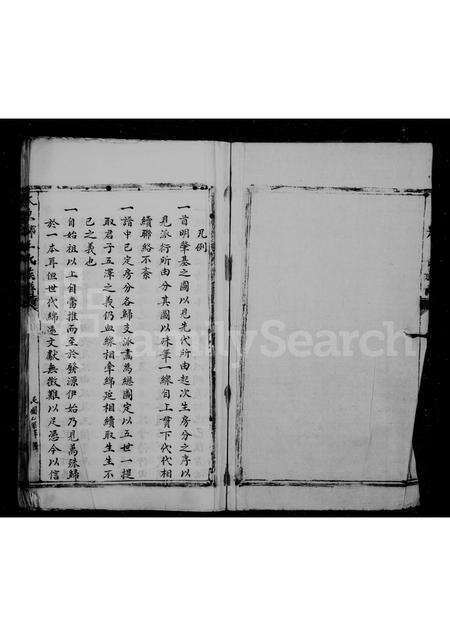 凡例
一首明肇基之圖以見先代所由起次生房分之序以
見派衍所由分其圖以硃筆一線自上貫下代代相
續聯絡不紊
一譜中已定房分各歸支派畵為總圖定以五世一提
取君子五澤之義仍血線相牽綿延相續取生生不
已之義也
一自始祖以上自當推而至於發源伊始乃見萬殊歸
於一本耳但世代綿遠文獻無徵難以足憑今以信
FamilySearch